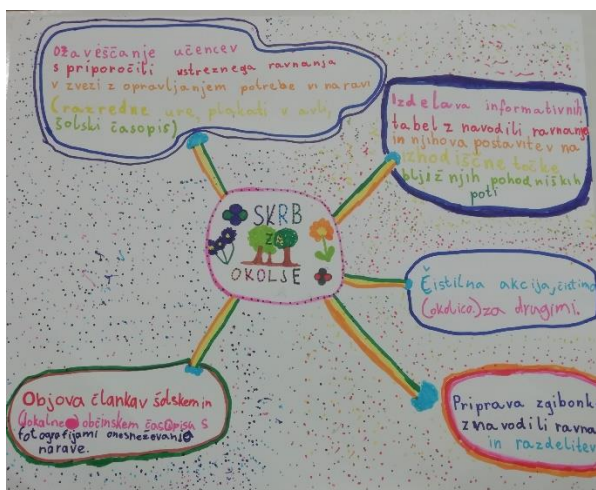 Ozaveščanje učencev
s priporočili ustreznega ravnanja
v zvezi z opravljanjem potrebe v naravi
(razredne ure, plakati v avli,
šolski časopis)
Izdelava informativnih
tabel z navodili ravnanja
in njihova postavitev na
izhodiščne točke
bližnjih pohodniških
poti
SKRB
ZA
OKOLJE
Čistilna akcija, čistimo
(okolico) za drugimi.
Objava člankav šolskem in
(lokalne) občinskem časopisu s
fotografijami onesnezevanja
narave.
Priprava zgibonk
z navodili ravna
in razdelitev